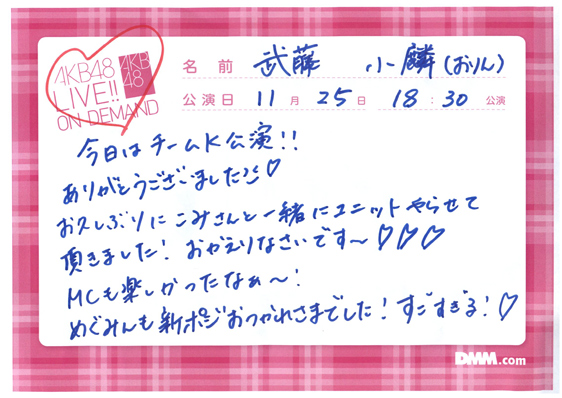 AKB48
LIVE!!
ON DEMAND
AKB
48
名前 武藤 小麟(おりん)
公演日 11月25日 18:30公演
今日はチームK公演!!
ありがとうございました♡
お久しぶりにこみさんと一緒にユニットやらせて
頂きました! おかえりなさいです〜♡♡♡
MCも楽しかったなぁ〜!
めぐみんも新ポジおつかれさまでした! すごすぎる!♡
DMM.com